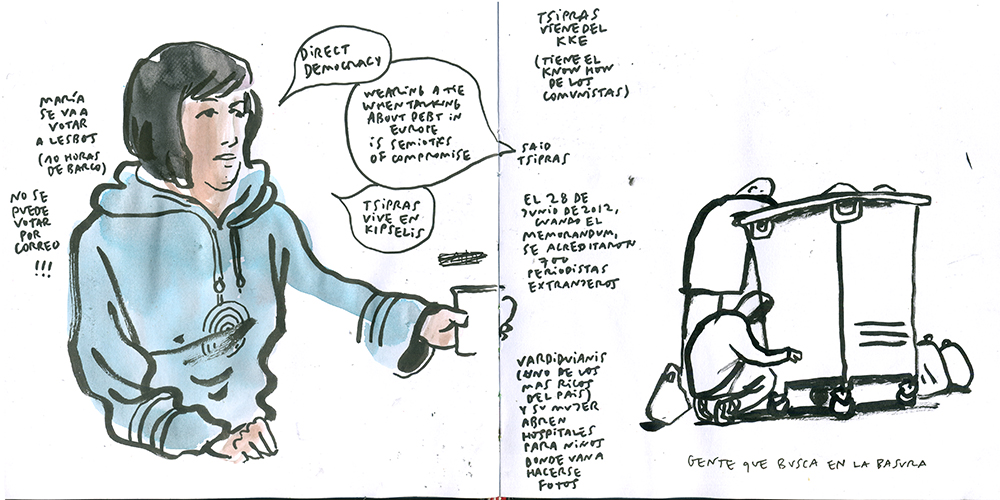 MARÍA
SE VA A
VOTAR
A LESBOS
(10 HORAS
DE BARCO)
NO SE
PUEDE
VOTAR
POR
CORREO
!!!
DIRECT
DEMOCRACY
WEARING A TIE
WHEN TALKING
ABOUT DEBT IN
EUROPE
IS SEMIOTICS
OF COMPROMISE
SAID
TSIPRAS
TSIPRAS
VIVE EN
KIPSELIS
TSIPRAS
VIENE DEL
KKE
(TIENE EL
KNOW HOW
DE LOS
COMUNISTAS)
EL 28 DE
JUNIO DE 2012,
CUANDO EL
MEMORANDUM,
SE ACREDITARON
700
PERIODISTAS
EXTRANJEROS
VARDIDVIANIS
(UNO DE LOS
MAS RICOS
DEL PAÍS)
Y SU MUJER
ABREN
HOSPITALES
PARA NIÑOS
DONDE VAN A
HACERSE
FOTOS
GENTE QUE BUSCA EN LA BASURA